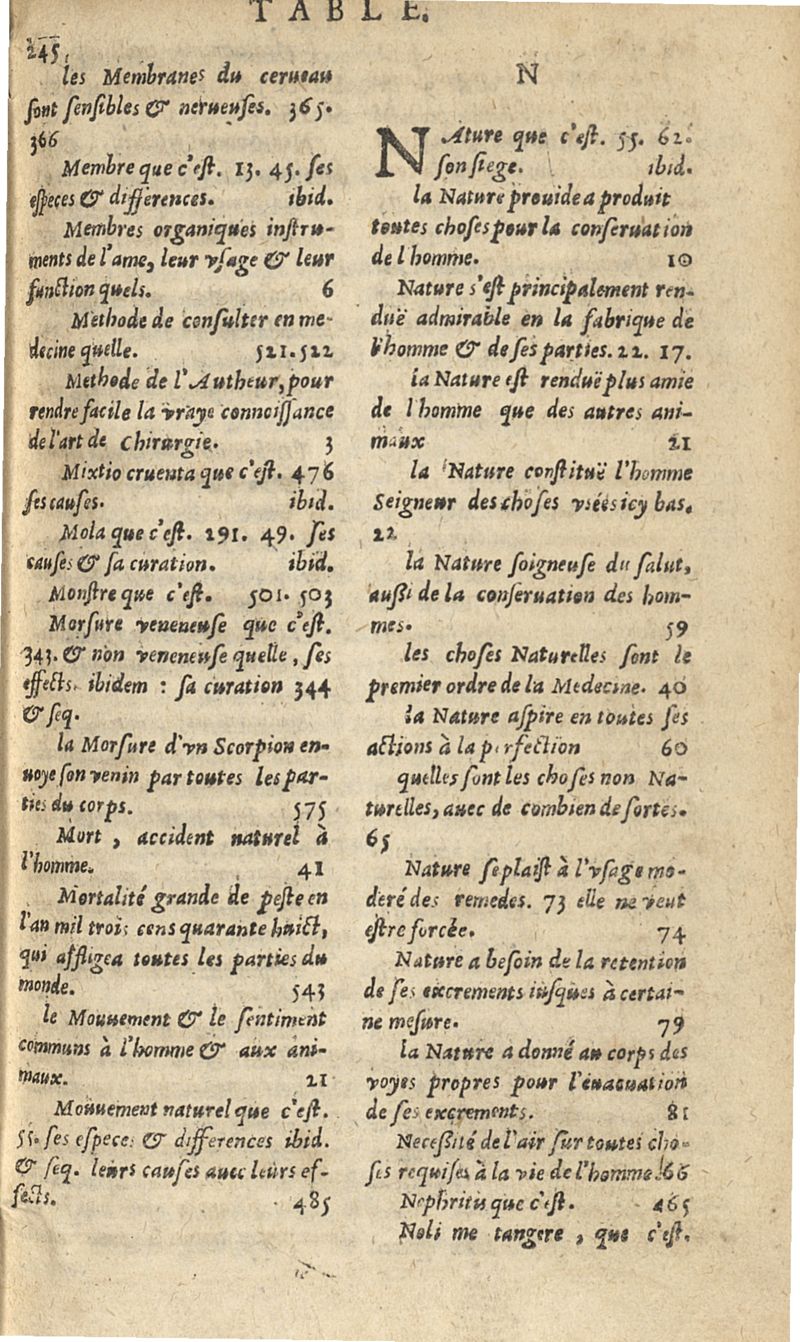 TABLE.
245.
les Membranes du cerueau
sont sensibles & nerueuses. 365.
366
Membre que c'est. 13. 45. ses
especes & differences. ibid.
Membres organiques instru-
ments de l'ame, leur vsage & leur
function quels. 6
Methode de consulter en me-
decine quelle. 521.522
Methode de l'Autheur, pour
rendre facile la vraye connoissance
de l'art de Chirurgie. 3
Mixtio cruenta que c'est. 476
ses causes. ibid.
Mola que c'est. 291. 49. ses
causes & sa curation. ibid.
Monstre que c'est. 501. 503
Morsure veneneuse que c'est.
343. & non veneneuse quelle, ses
effects. ibidem : sa curation 344
& seq.
la Morsure d'vn Scorpion en-
uoye son venin par toutes les par-
ties du corps. 575
Mort, accident naturel à
l'homme. 41
Mortalité grande de peste en
l'an mil trois cens quarante huict,
qui affligea toutes les parties du
monde. 543
le Mouuement & le sentiment
communs à l'homme & aux ani-
maux. 21
Mouuement naturel que c'est.
55. ses especes & differences ibid.
& seq. leurs causes auec leurs ef-
fects. 485
N
NAture que c'est. 55. 62.
son siege. ibid.
la Nature prouide a produit
toutes choses pour la conseruation
de l'homme. 10
Nature s'est principalement ren-
duë admirable en la fabrique de
l'homme & de ses parties. 22. 17.
la Nature est renduë plus amie
de l'homme que des autres ani-
maux 21
la Nature constituë l'homme
Seigneur des choses creées icy bas.
22
la Nature soigneuse du salut,
aussi de la conseruation des hom-
mes. 59
les choses Naturelles sont le
premier ordre de la Medecine. 40
la Nature aspire en toutes ses
actions à la perfection 60
quelles sont les choses non Na-
turelles, auec de combien de sortes.
65
Nature se plaist à l'vsage mo-
deré des remedes. 73 elle ne veut
estre forcée. 74
Nature a besoin de la retention
de ses excrements iusques à certai-
ne mesure. 79
la Nature a donné au corps des
voyes propres pour l'euacuation
de ses excrements. 81
Necessité de l'air sur toutes cho-
ses requises à la vie de l'homme. 66
Nephritis que c'est. 465
Noli me tangere, que c'est.